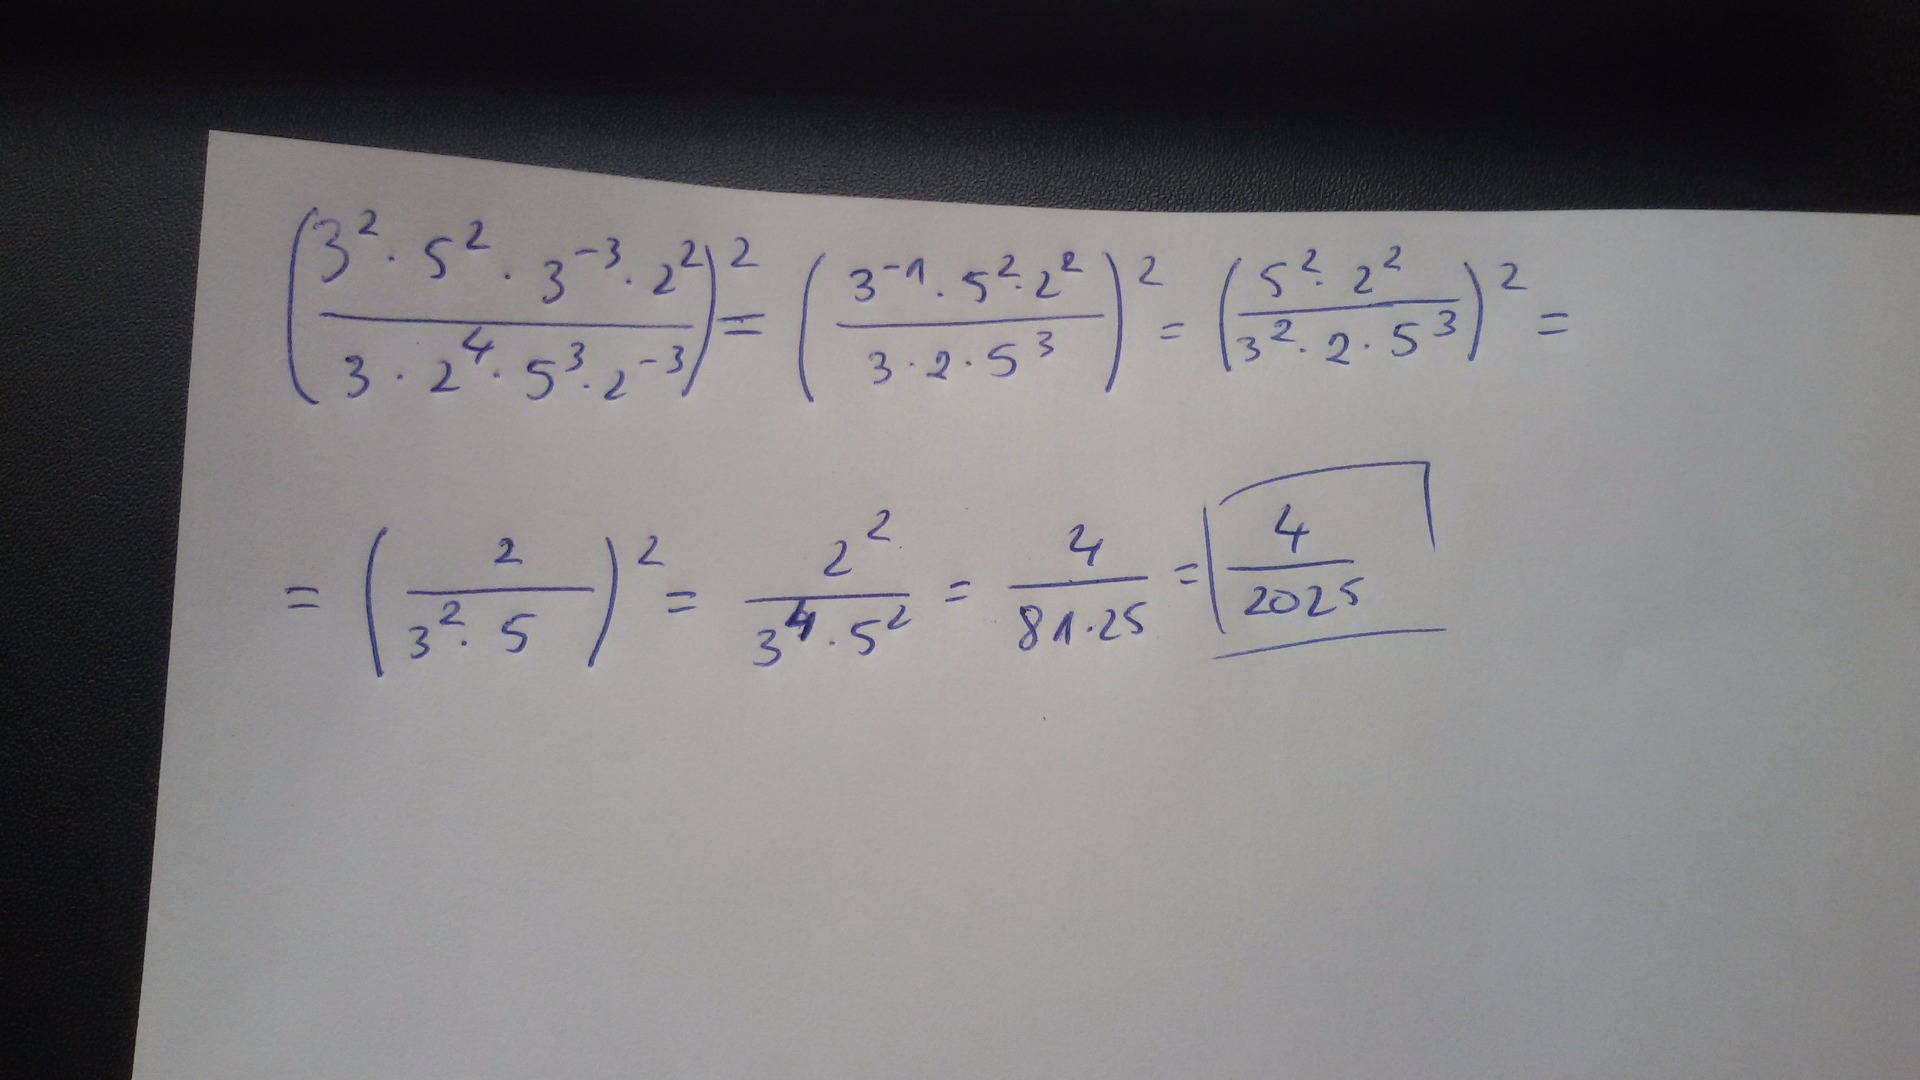 (3² · 5² · 3⁻³ · 2² / 3 · 2⁴ · 5³ · 2⁻³)² = (3⁻¹ · 5² · 2² / 3 · 2 · 5³)² = (5² · 2² / 3² · 2 · 5³)² =
= (2 / 3² · 5)² = 2² / 3⁴ · 5² = 4 / 81 · 25 = 4 / 2025